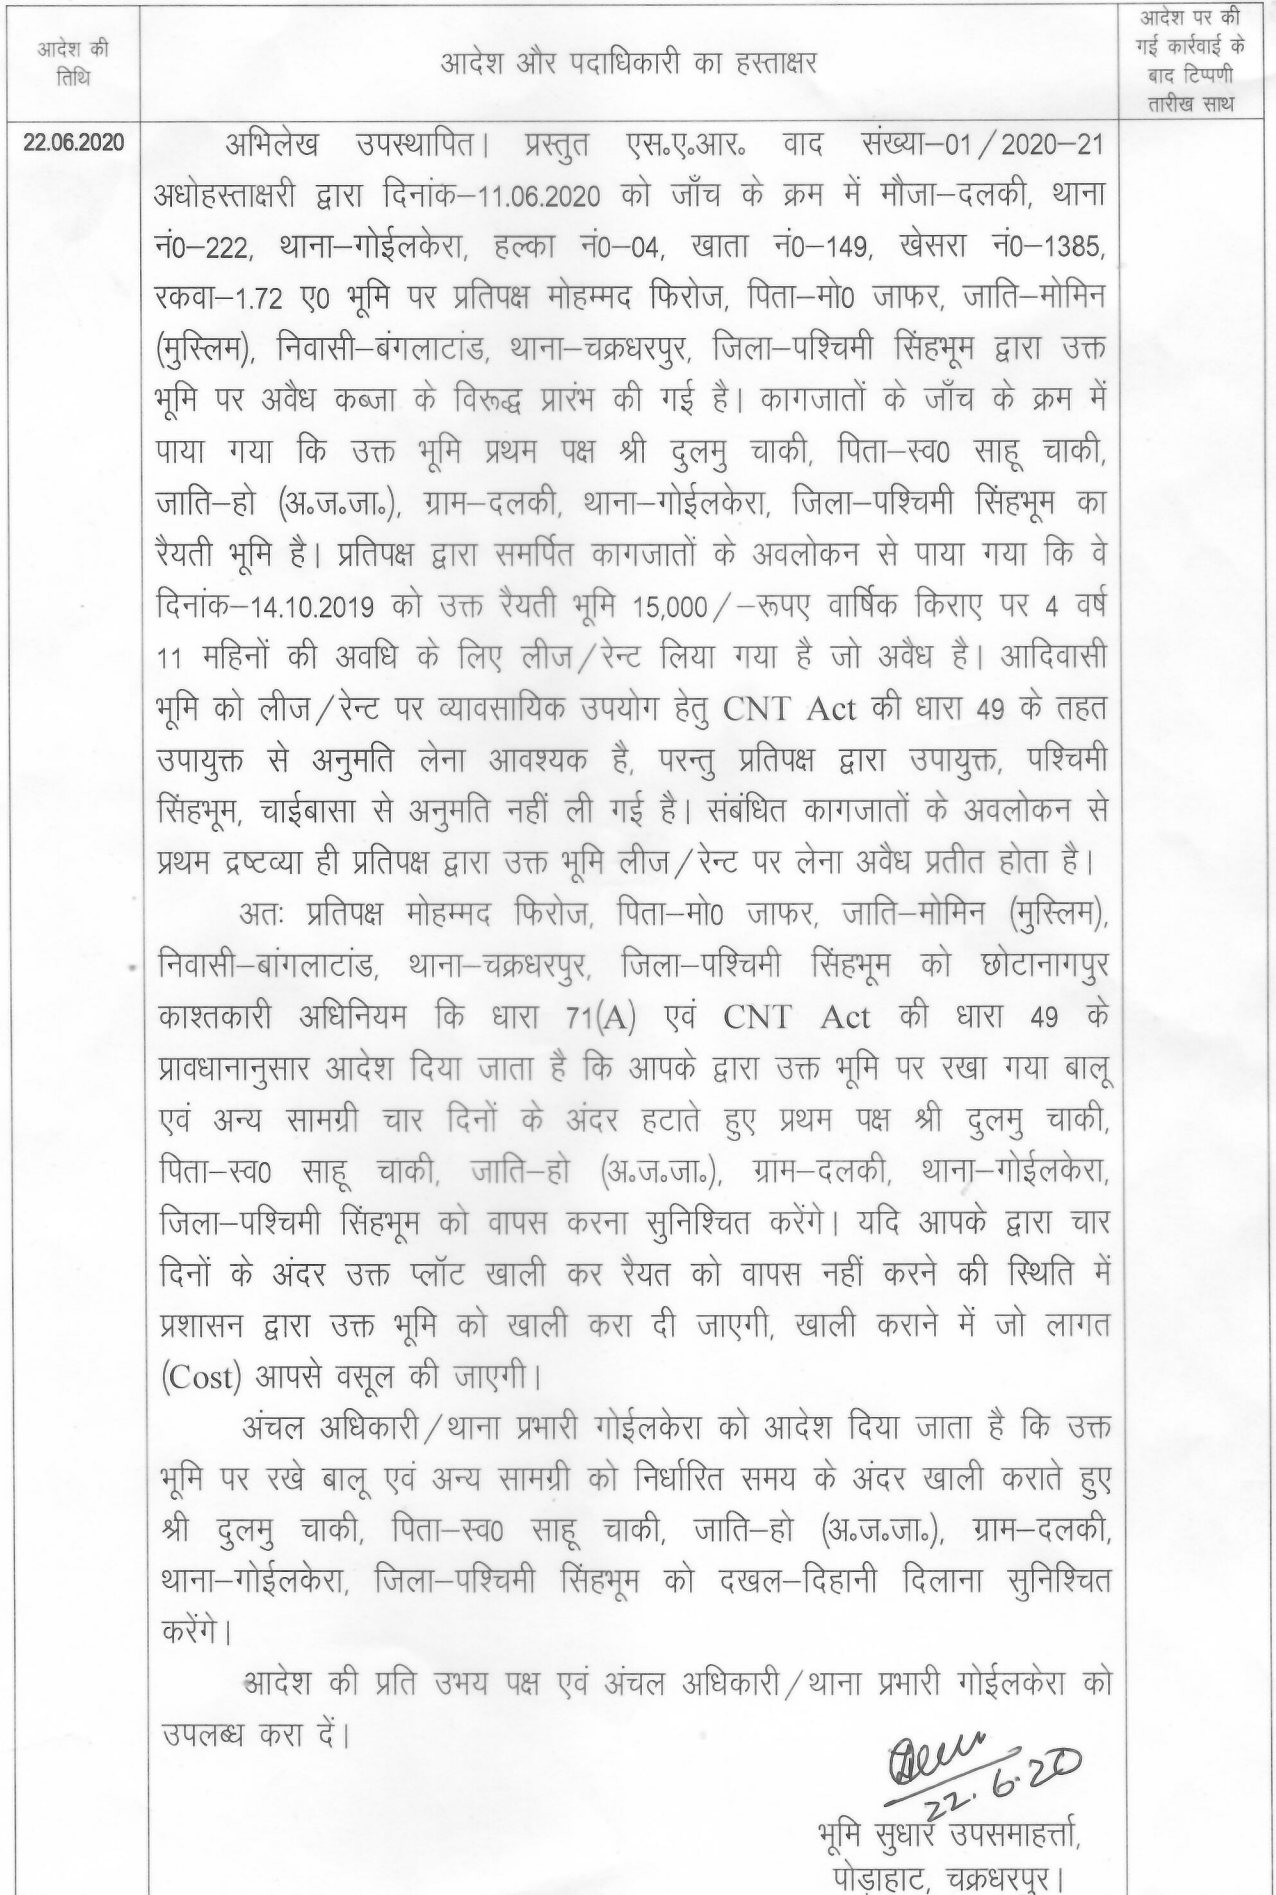 आदेश की
तिथि
आदेश और पदाधिकारी का हस्ताक्षर
आदेश पर की
गई कार्रवाई के
बाद टिप्पणी
तारीख साथ
22.06.2020
अभिलेख उपस्थापित। प्रस्तुत एस॰ए॰आर॰ वाद संख्या–01/2020–21
अधोहस्ताक्षरी द्वारा दिनांक–11.06.2020 को जाँच के क्रम में मौजा–दलकी, थाना
नं0–222, थाना–गोईलकेरा, हल्का नं0–04, खाता नं0–149, खेसरा नं0–1385,
रकवा–1.72 ए0 भूमि पर प्रतिपक्ष मोहम्मद फिरोज, पिता–मो0 जाफर, जाति–मोमिन
(मुस्लिम), निवासी–बंगलाटांड, थाना–चक्रधरपुर, जिला–पश्चिमी सिंहभूम द्वारा उक्त
भूमि पर अवैध कब्जा के विरूद्ध प्रारंभ की गई है। कागजातों के जाँच के क्रम में
पाया गया कि उक्त भूमि प्रथम पक्ष श्री दुलमु चाकी, पिता–स्व0 साहू चाकी,
जाति–हो (अ॰ज॰जा॰), ग्राम–दलकी, थाना–गोईलकेरा, जिला–पश्चिमी सिंहभूम का
रैयती भूमि है। प्रतिपक्ष द्वारा समर्पित कागजातों के अवलोकन से पाया गया कि वे
दिनांक–14.10.2019 को उक्त रैयती भूमि 15,000/–रूपए वार्षिक किराए पर 4 वर्ष
11 महिनों की अवधि के लिए लीज/रेन्ट लिया गया है जो अवैध है। आदिवासी
भूमि को लीज/रेन्ट पर व्यावसायिक उपयोग हेतु CNT Act की धारा 49 के तहत
उपायुक्त से अनुमति लेना आवश्यक है, परन्तु प्रतिपक्ष द्वारा उपायुक्त, पश्चिमी
सिंहभूम, चाईबासा से अनुमति नहीं ली गई है। संबंधित कागजातों के अवलोकन से
प्रथम द्रष्टव्या ही प्रतिपक्ष द्वारा उक्त भूमि लीज/रेन्ट पर लेना अवैध प्रतीत होता है।
अतः प्रतिपक्ष मोहम्मद फिरोज, पिता–मो0 जाफर, जाति–मोमिन (मुस्लिम),
निवासी–बांगलाटांड, थाना–चक्रधरपुर, जिला–पश्चिमी सिंहभूम को छोटानागपुर
काश्तकारी अधिनियम कि धारा 71(A) एवं CNT Act की धारा 49 के
प्रावधानानुसार आदेश दिया जाता है कि आपके द्वारा उक्त भूमि पर रखा गया बालू
एवं अन्य सामग्री चार दिनों के अंदर हटाते हुए प्रथम पक्ष श्री दुलमु चाकी,
पिता–स्व0 साहू चाकी, जाति–हो (अ॰ज॰जा॰), ग्राम–दलकी, थाना–गोईलकेरा,
जिला–पश्चिमी सिंहभूम को वापस करना सुनिश्चित करेंगे। यदि आपके द्वारा चार
दिनों के अंदर उक्त प्लॉट खाली कर रैयत को वापस नहीं करने की स्थिति में
प्रशासन द्वारा उक्त भूमि को खाली करा दी जाएगी, खाली कराने में जो लागत
(Cost) आपसे वसूल की जाएगी।
अंचल अधिकारी/थाना प्रभारी गोईलकेरा को आदेश दिया जाता है कि उक्त
भूमि पर रखे बालू एवं अन्य सामग्री को निर्धारित समय के अंदर खाली कराते हुए
श्री दुलमु चाकी, पिता–स्व0 साहू चाकी, जाति–हो (अ॰ज॰जा॰), ग्राम–दलकी,
थाना–गोईलकेरा, जिला–पश्चिमी सिंहभूम को दखल–दिहानी दिलाना सुनिश्चित
करेंगे।
आदेश की प्रति उभय पक्ष एवं अंचल अधिकारी/थाना प्रभारी गोईलकेरा को
उपलब्ध करा दें।
22.6.20
भूमि सुधार उपसमाहर्त्ता,
पोड़ाहाट, चक्रधरपुर।